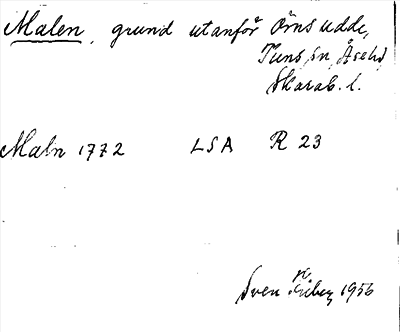 Malen, grund utanför Örns udde,
Tuns sn, Åse hd,
Skarab. l.
Maln 1772 LSA R 23
Sven 1956